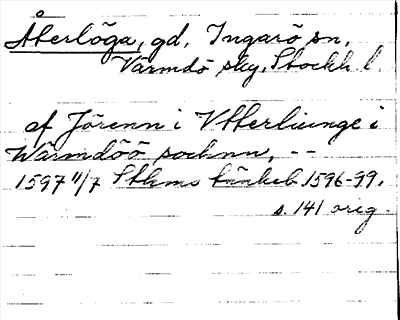 Återlöga, gd, Ingarö sn,
Värmdö skg, Stockh. l.
af Jörenn i Vtterliunge i
Wärmdöö sochnn, --
1597 11/7 Sthms tänkeb. 1596-99,
s. 141 orig.